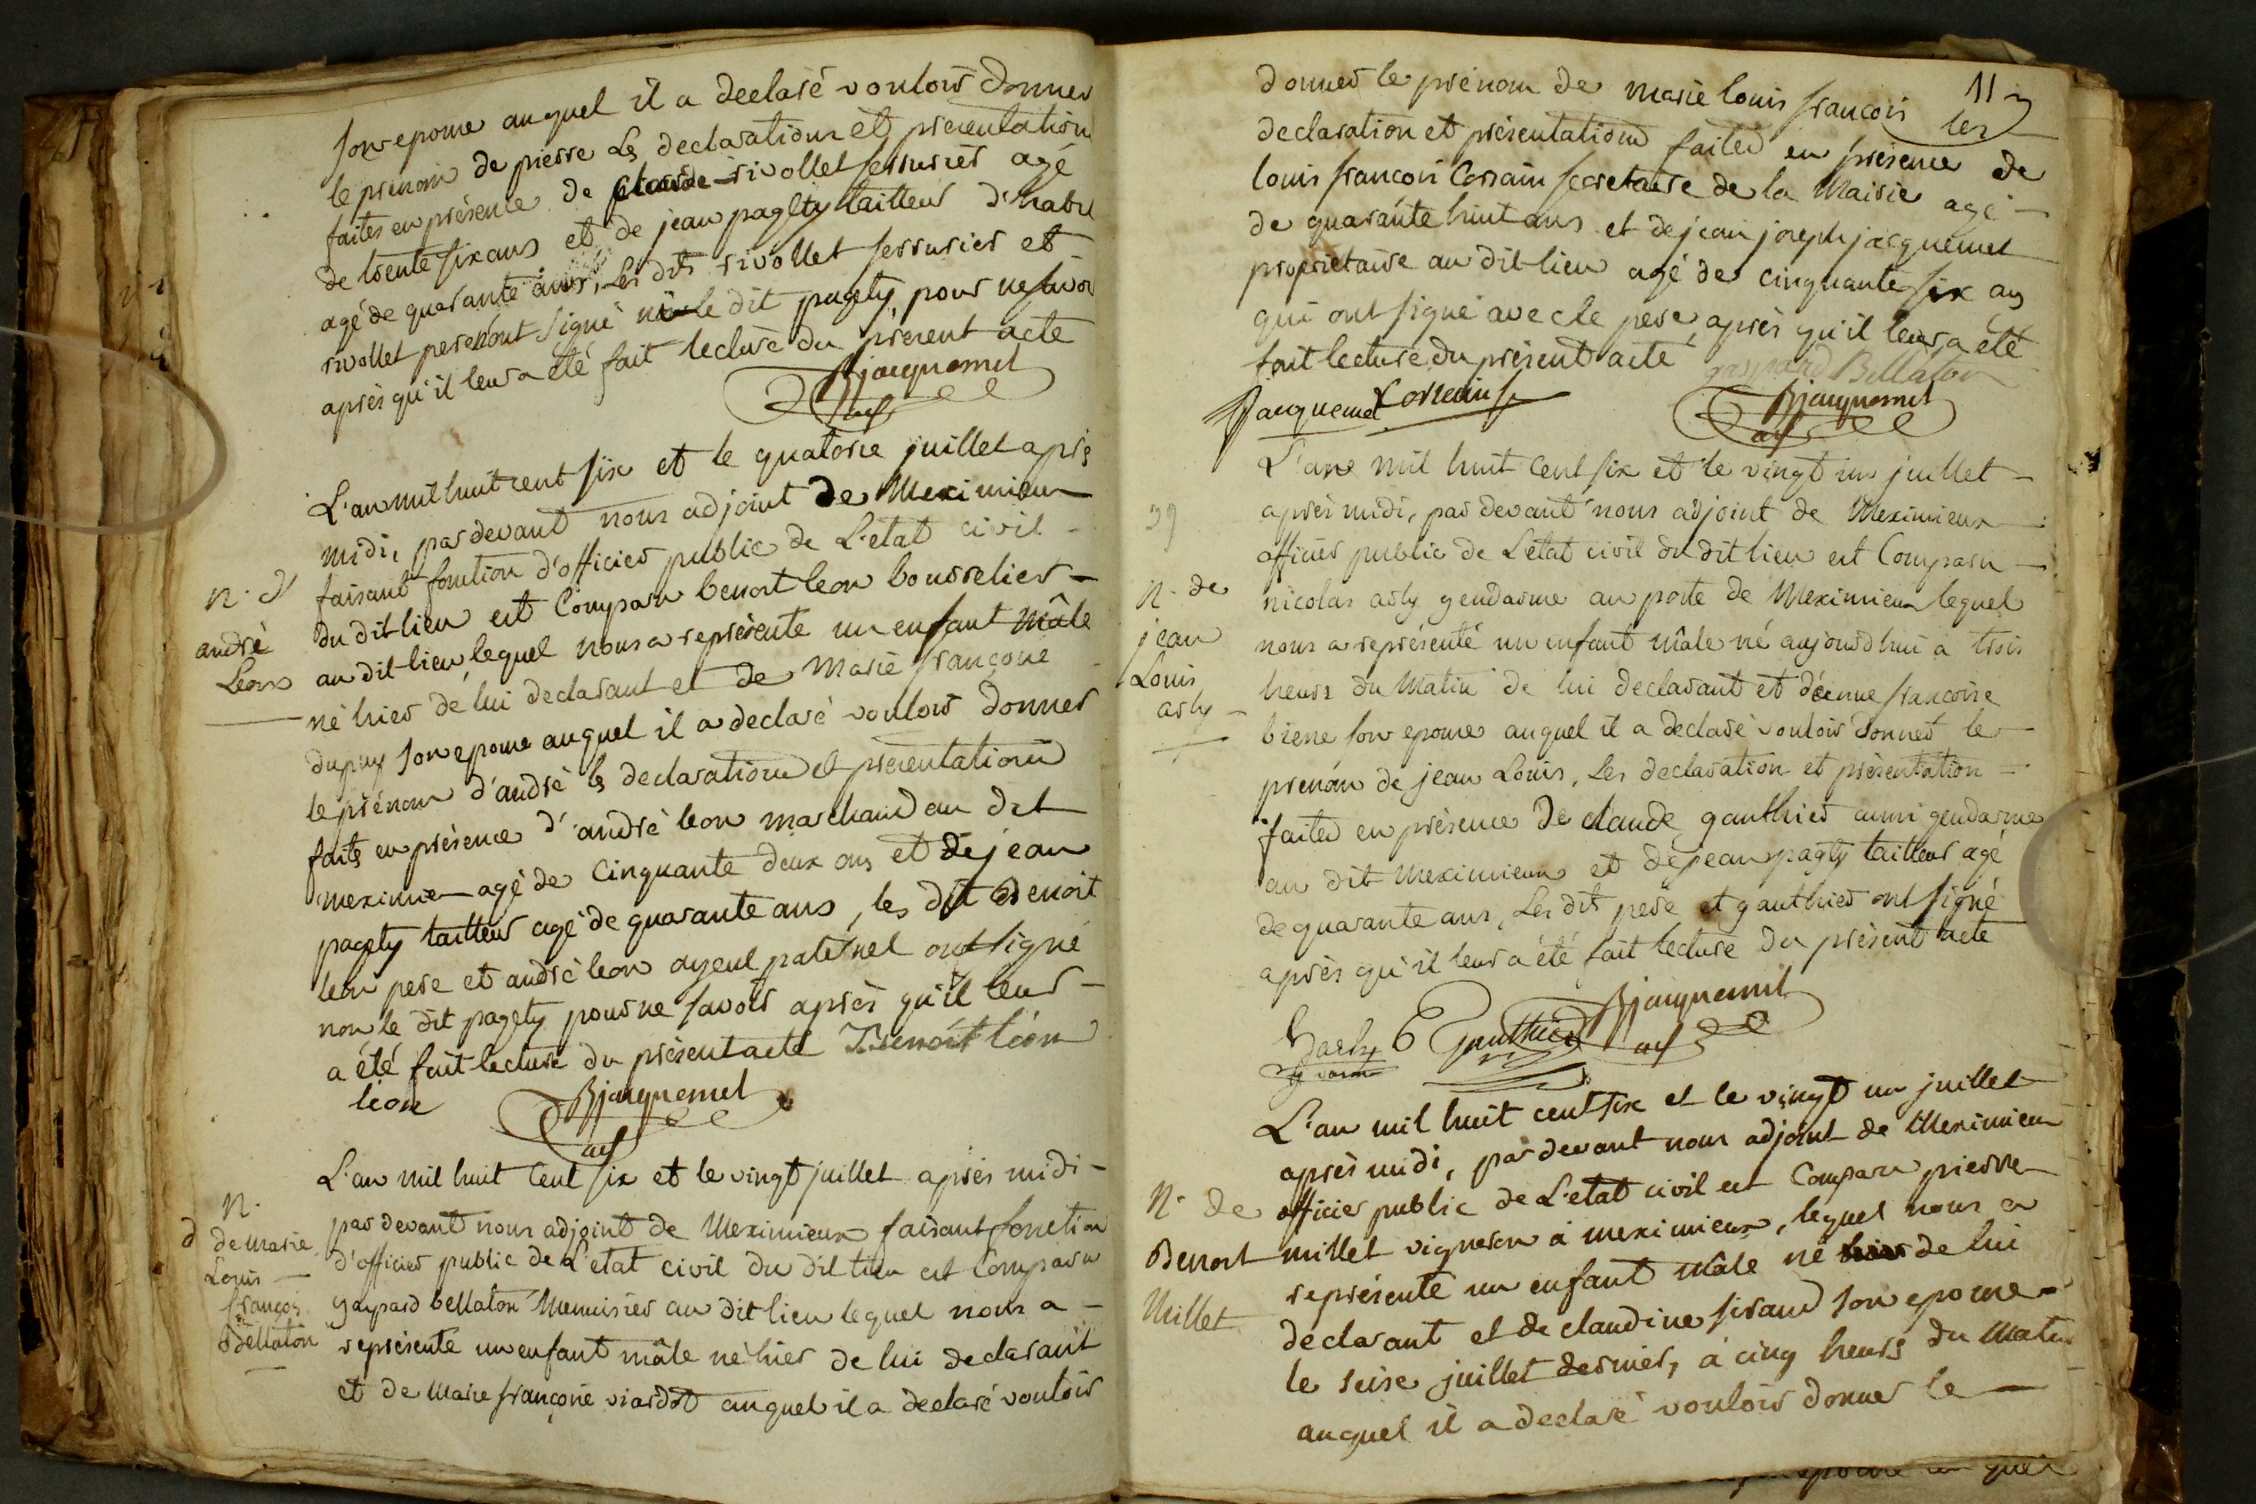 son epouse auquel il a declaré vouloir donner
le prenom de pierre les declarations et presentation
faites en présence de claude rivollet serrurier agé
de trente six ans et de jean pagety tailleur d'habit
agé de quarante ans, les dits rivollet serrurier et
rivollet pere ont signé non le dit pagety pour ne savoir
après qu'il leur a été fait lecture du present acte
Bjacquemet
adj
L'an mil huit cent six et le quatorse juillet après
midi, par devant nous adjoint de Meximieux
faisant fonction d'officier public de L'etat civil
du dit lieu est Comparu benoit leon bourrelier
au dit lieu, lequel nous a représenté un enfant mâle
né hier de lui declarant et de Marie françoise
dupuy son epouse auquel il a declaré vouloir donner
le prénom d'andré les declarations et presentations
faits en présence d'andré leon marchand au dit
meximieu agé de cinquante deux ans et de jean
pagety tailleur agé de quarante ans, les dit Benoit
leon pere et andré leon ayeul paternel ont signé
non le dit pagety pour ne savoir après qu'il leur
a été fait lecture du présent acte Benoit léon
léon
Bjacquemet
adj
n. d'
andré
Leon
L'an mil huit Cent six et le vingt juillet après midi
par devant nous adjoint de Meximieux faisant fonction
d'officier public de L'etat civil du dit lieu est Comparu
gaspard bellaton Menuisier au dit lieu lequel nous a
représenté un enfant mâle né hier de lui declarant
et de Marie françoise viardot auquel il a declaré vouloir
n.
de marie
Louis
françois
Bellaton
11
donner le prénom de marie louis françois les
declaration et présentations faites en présence de
louis françois Corsain secretaire de la Mairie agé
de quarante huit ans et de jean joseph jacquemet
proprietaire au dit lieu agé de cinquante six ans
qui ont signé avec le pere, après qu'il leur a été
fait lecture du présent acte gaspard Bellaton
Jacquemet Corsain
Bjacquemet
adj
L'an mil huit cent six et le vingt un juillet
après midi, par devant nous adjoint de Meximieux
officier public de L'état civil du dit lieu est Comparu
nicolas arly gendarme au poste de Meximieux lequel
nous a représenté un enfant mâle né aujourd'hui a trois
heurs du Matin de lui declarant et d'éenne françoise
biene son epouse auquel il a declaré vouloir donner le
prenom de jean Louis, les declaration et présentation
faites en présence de claude gauthier aussi gendarme
au dit meximieux et de jean pagety tailleur agé
de quarante ans, les dit pere et gauthier ont signé
après qu'il leur a été fait lecture du présent acte
39
n. de
jean
Louis
arly
arly Gauthier Bjacquemet
adj
L'an mil huit cent six et le vingt un juillet
après midi, par devant nous adjoint de Meximieux
officier public de L'etat civil est Comparu pierre
millet vigneron à meximieux, lequel nous a
représenté un enfant mâle né hier de lui
declarant et de claudine siraud son epouse
le seise juillet dernier, à cinq heurs du Matin
auquel il a declaré vouloir donner le
N. de
Benoit
Millet